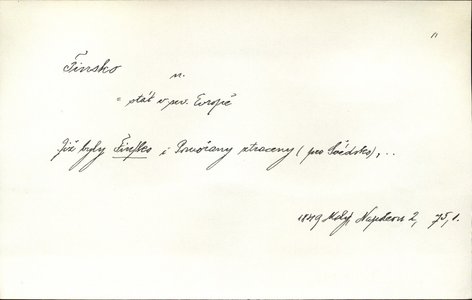 "
Finsko n.
= stát v sev. Evropě
Již byly Finſko i Pomořany ztraceny (pro Švédsko), ..
1849 Malý, Napoleon 2, 75, 1.